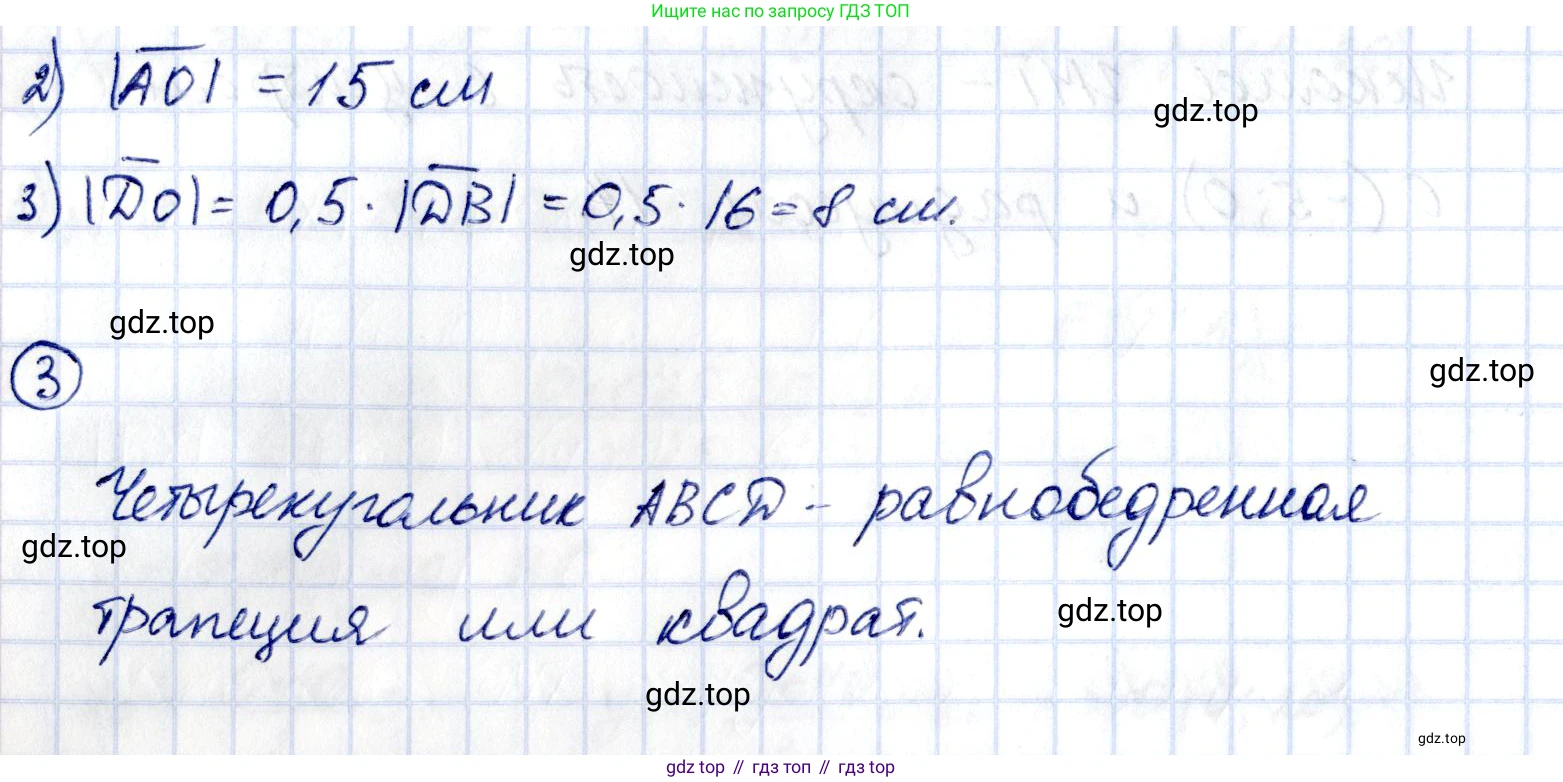 Ищите нас по запросу ГДЗ ТОП
2) |AO| = 15 см
gdz.top
3) |DO| = 0,5 · |DB| = 0,5 · 16 = 8 см.
gdz.top
gdz.top
3
gdz.top
Четырехугольник ABCD - равнобедренная
gdz.top
трапеция или квадрат.
gdz.top
gdz.top
gdz.top
gdz top // гдз топ // гдз top